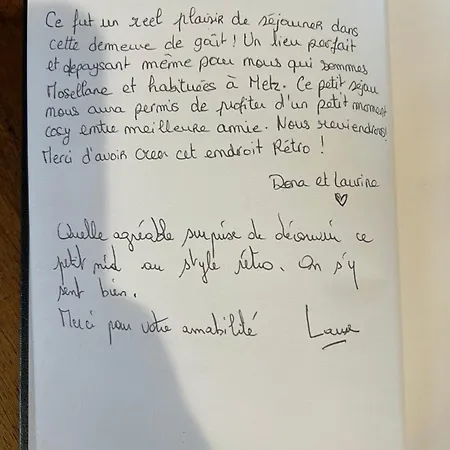 Ce fut un reel plaisir de séjourner dans
cette demeure de goût ! Un lieu parfait
et depaysant même pour nous qui sommes
Mosellane et habituées à Metz. Ce petit séjour
nous aura permis de profiter d'un petit moment
cosy entre meilleure amie. Nous reviendrons !
Merci d'avoir creer cet endroit Rétro !
Dona et Laurine
Quelle agréable surprise de découvrir ce
petit nid au style rétro. On s'y
sent bien.
Merci pour votre amabilité
Laura